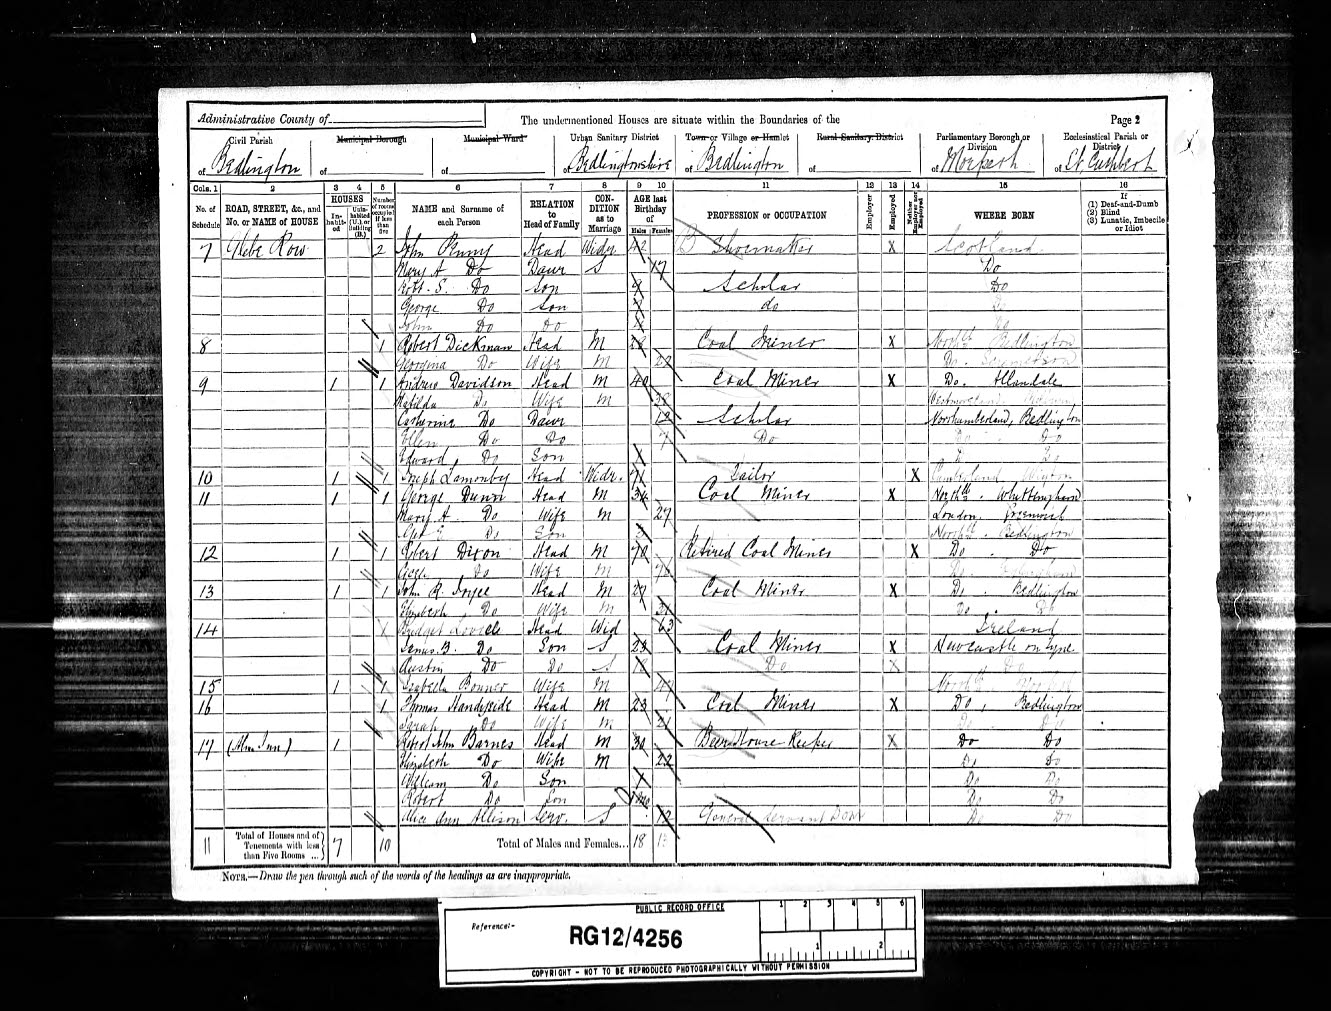 Administrative County of
The undermentioned Houses are situate within the Boundaries of the
Page 2
Civil Parish
of Bedlington
Municipal Borough
of
Municipal Ward
of
Urban Sanitary District
of Bedlingtonshire
Town or Village or Hamlet
of Bedlington
Rural Sanitary District
of
Parliamentary Borough or Division
of Morpeth
Ecclesiastical Parish or District
of St. Cuthbert
Cols. 1 2 3 4 5 6 7 8 9 10 11 12 13 14 15 16
No. of Schedule
ROAD, STREET, &c., and No. or NAME of HOUSE
HOUSES
Inhabited
Uninhabited (U.), or Building (B.)
Number of rooms occupied if less than five
NAME and Surname of each Person
RELATION to Head of Family
CONDITION as to Marriage
AGE last Birthday of
Males Females
PROFESSION or OCCUPATION
Employer
Employed
Neither Employer nor Employed
WHERE BORN
If
(1) Deaf-and-Dumb
(2) Blind
(3) Lunatic, Imbecile or Idiot
7 Row 2 John Head Widr Shoemaker X Scotland
Mary A Do Daur S 17 Do
Robt. S. Do Son Scholar Do
George Do Son do
John Do Do
8 1 Robert Dickman Head M Coal Miner X North'd Bedlington
Georgina Do Wife M 22 Do.
9 1 1 Andrew Davidson Head M 40 Coal Miner X Do. Allandale
Matilda Do Wife M
Catherine Do Daur 12 Scholar Northumberland, Bedlington
Ellen Do Do 7 Do Do Do
Edward Do Son Do
10 1 1 Joseph Lamonby Head Widr. 71 Tailor X Cumberland Wigton
11 1 1 George Dunn Head M 34 Coal Miner X North'd. Whittingham
Mary A. Do Wife M 27 London, Greenwich
Do Son North'd. Bedlington
12 1 1 Robert Dixon Head M 70 Retired Coal Miner X Do. Do
Do Wife M
13 1 1 John R. Joyce Head M 27 Coal Miner X Do. Bedlington
Elizabeth Do Wife M 31 Do. Do
14 X Bridget Head Wid 63 Ireland
James B. Do Son S 23 Coal Miner X Newcastle on Tyne
Austin Do Do S 18 Do X Do
15 1 1 Isabella Bonner Wife M North'd
16 1 Thomas Handyside Head M 23 Coal Miner X Do, Bedlington
Sarah Do Wife M 21 Do Do
17 1 Robert John Barnes Head M 30 Beer House Keeper X Do Do
Elizabeth Do Wife M 22 Do Do
William Do Son Do Do
Robert Do Son Do Do
Alice Ann Allison Serv. S General Servant Dom Do Do
11 Total of Houses and of Tenements with less than Five Rooms ... 7 10 Total of Males and Females... 18 13
NOTE.—Draw the pen through such of the words of the headings as are inappropriate.
PUBLIC RECORD OFFICE
Reference:-
RG12/4256
1 2 3 4 5 6
1 2
COPYRIGHT - NOT TO BE REPRODUCED PHOTOGRAPHICALLY WITHOUT PERMISSION